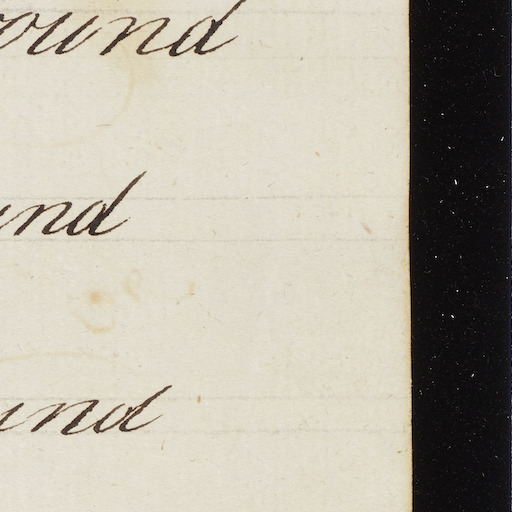 round
und
und